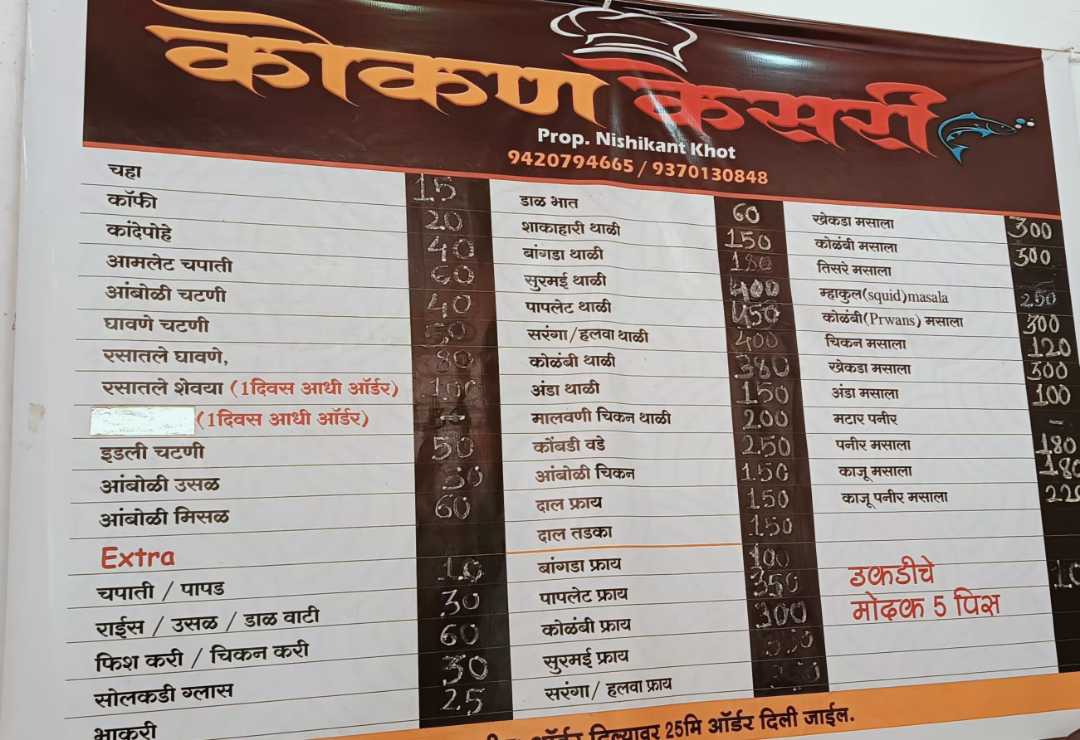 कोकण केसरी
Prop. Nishikant Khot
9420794665 / 9370130848
चहा 15
कॉफी 20
कांदेपोहे 40
आमलेट चपाती 60
आंबोळी चटणी 40
घावणे चटणी 50
रसातले घावणे, 80
रसातले शेवया (1दिवस आधी ऑर्डर) 100
(1दिवस आधी ऑर्डर)
इडली चटणी 50
आंबोळी उसळ 50
आंबोळी मिसळ 60
Extra
चपाती / पापड 10
राईस / उसळ / डाळ वाटी 30
फिश करी / चिकन करी 60
सोलकडी ग्लास 30
भाकरी 25
डाळ भात 60
शाकाहारी थाळी 150
बांगडा थाळी 180
सुरमई थाळी 400
पापलेट थाळी 450
सरंगा/हलवा थाळी 400
कोळंबी थाळी 380
अंडा थाळी 150
मालवणी चिकन थाळी 200
कोंबडी वडे 250
आंबोळी चिकन 150
दाल फ्राय 150
दाल तडका 150
बांगडा फ्राय 100
पापलेट फ्राय 350
कोळंबी फ्राय 300
सुरमई फ्राय
सरंगा/ हलवा फ्राय
खेकडा मसाला 300
कोळंबी मसाला 300
तिसरे मसाला
म्हाकुल(squid)masala 250
कोळंबी(Prwans) मसाला 300
चिकन मसाला 120
खेकडा मसाला 300
अंडा मसाला 100
मटार पनीर -
पनीर मसाला 180
काजू मसाला 180
काजू पनीर मसाला 220
उकडीचे
मोदक 5 पिस
ऑर्डर दिल्यावर 25मि ऑर्डर दिली जाईल.